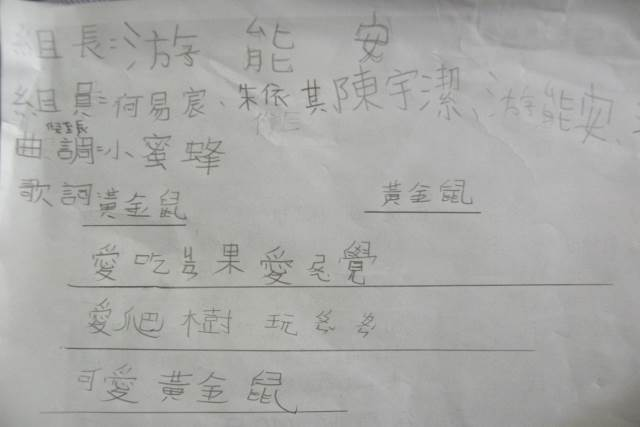 組長:游能安
組員:何易宸、朱依其 陳宇潔、游能安、
曲調:小蜜蜂
歌詞 黃金鼠 黃金鼠
愛吃 果愛 覺
愛爬樹 玩
可愛黃金鼠